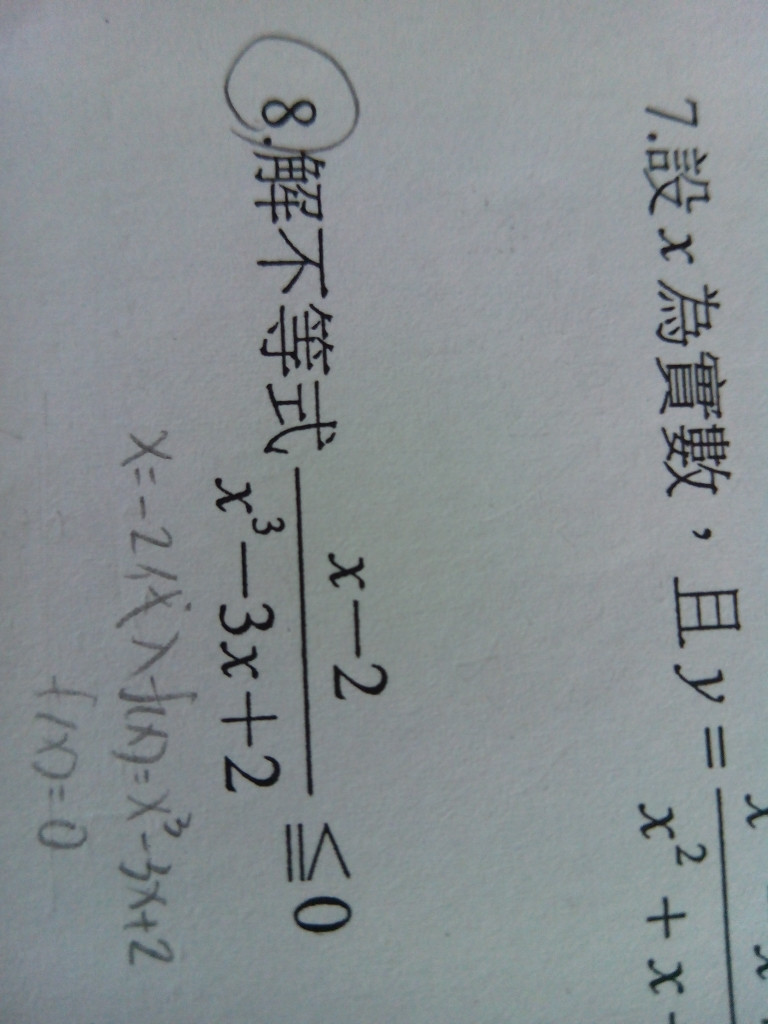 7.設 x 為實數，且 y =
x² + x -
8.解不等式 x-2 / x³-3x+2 ≦0
x=-2代入f(x)=x³-3x+2
f(x)=0